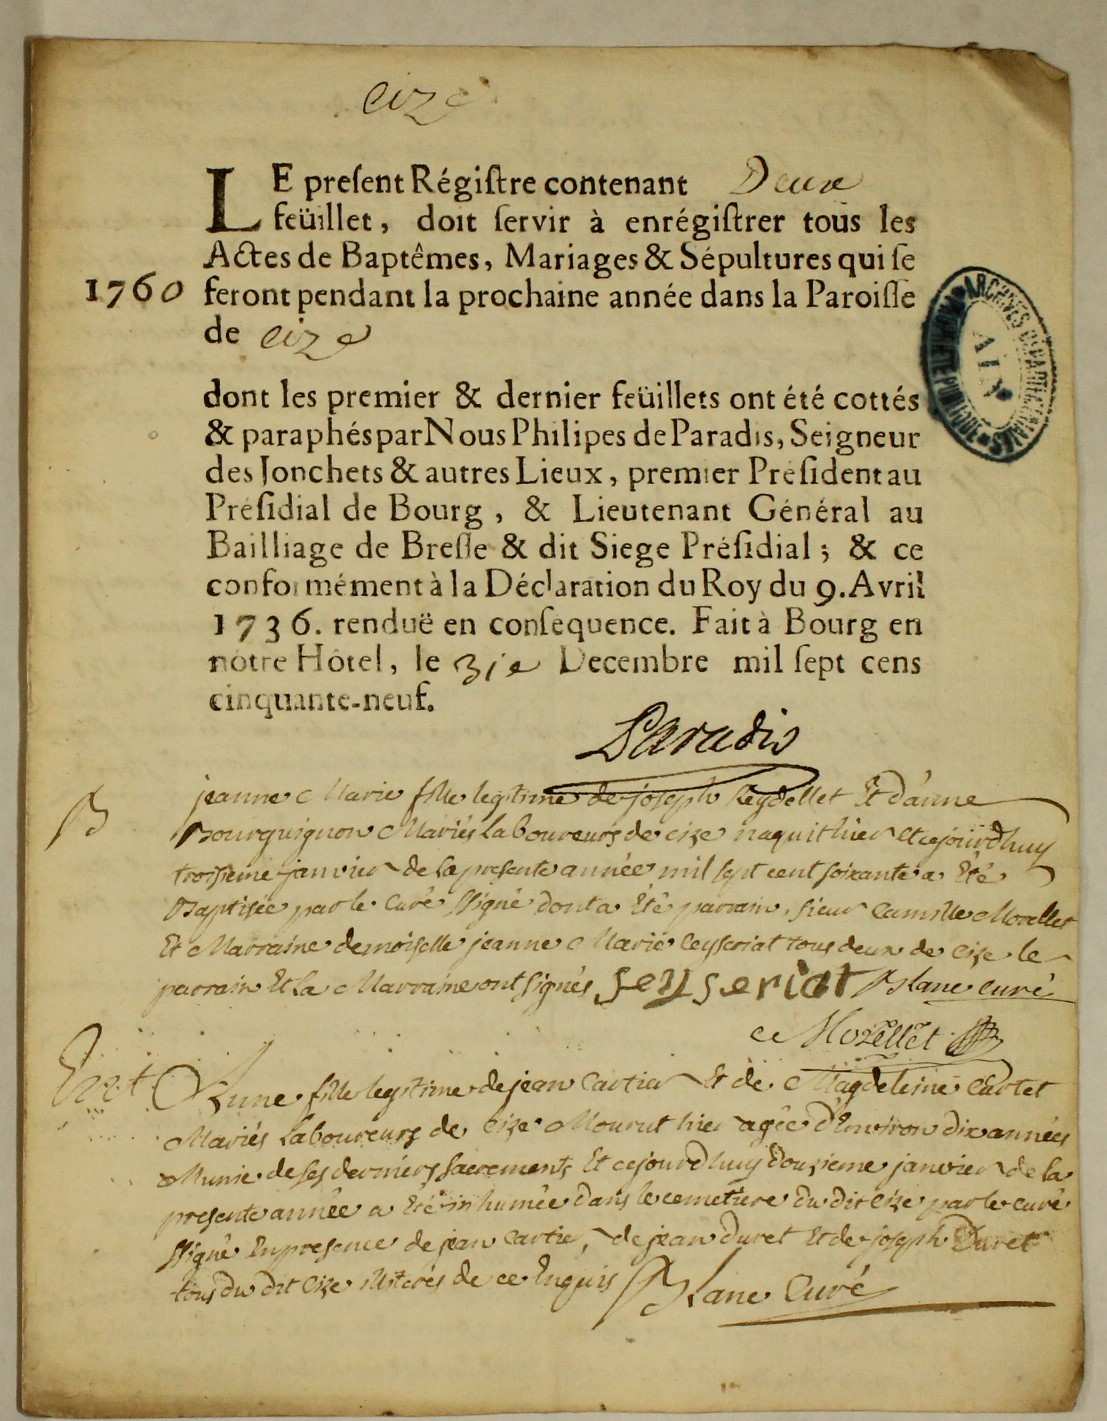 Cize
LE preſent Régiſtre contenant Deux
feüillet, doit ſervir à enrégiſtrer tous les
Actes de Baptêmes, Mariages & Sépultures qui ſe
1760 feront pendant la prochaine année dans la Paroiſſe
de Cize
ARCHIVES DEPARTEMENTALES
AIN
dont les premier & dernier feüillets ont été cottés
& paraphés par Nous Philipes de Paradis, Seigneur
des Jonchets & autres Lieux, premier Préſident au
Préſidial de Bourg, & Lieutenant Général au
Bailliage de Breſſe & dit Siege Préſidial; & ce
conformément à la Déclaration du Roy du 9. Avril
1736. renduë en conſequence. Fait à Bourg en
nôtre Hôtel, le 31e Decembre mil ſept cens
cinquante-neuf.
Paradis
B jeanne Marie fille legitime de joseph Reydellet Et d'anne
Bourguignon Mariés Laboureurs de Cize naquit hier et cejourdhuy
troisieme janvier de la presente année mil sept cent soixante a Eté
Baptisée par le Curé ssigné dont a Eté parrain sieur Camille Morellet
Et Marraine demoiselle jeanne Marie Ceyseriat tous deux de Cize le
parrain Et La Marraine ont signés seyseriat Blanc Curé
C Morellet
Anne fille legitime de jean Cartier Et de Magdeleine Cartet
Mariés Laboureurs de Cize Mourut hier agée d'Environ dix années
Munie de ses derniers sacrements Et cejourdhuy douzieme janvier de la
presente année a Eté inhumée dans le cemetiere du dit Cize par le curé
ssigné En presence de jean Cartier, de jean Duret Et de joseph Duret
tous du dit Cize illiterés de ce Enquis Blanc Curé